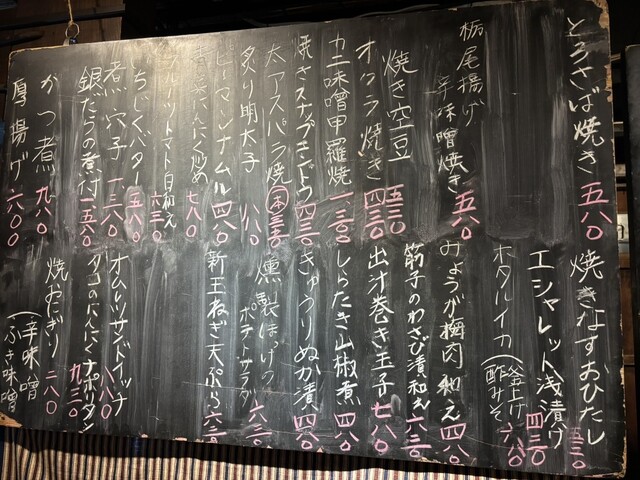 とろさば焼き 五八〇
栃尾揚げ
辛味噌焼き 五八〇
焼き空豆 五三〇
オクラ焼き 四三〇
カニ味噌甲羅焼 一、二三〇
焼きスナップエンドウ 四三〇
太アスパラ焼 (一本)三三〇
炙り明太子 八八〇
ピーマンナムル 四八〇
にんにく炒め 七八〇
フルーツトマト白和え 六三〇
いちじくバター 五八〇
煮穴子 一、三八〇
銀だらの煮付 一、五八〇
かつ煮 九八〇
厚揚げ 六〇〇
焼きなすおひたし 五三〇
エシャレット浅漬け 四三〇
ホタルイカ (釜上げ 酢みそ) 六八〇
みょうが梅肉和え 四八〇
筋子のわさび漬和え 六三〇
出汁巻き玉子 七八〇
しらたき山椒煮 四八〇
きゅうりぬか漬 四八〇
燻製ほっけの
ポテトサラダ 六三〇
新玉ねぎ天ぷら 六三〇
オムレツサンドイッチ 八八〇
タコのにんにくナポリタン 九三〇
焼おにぎり 二八〇
(辛味噌
ふき味噌